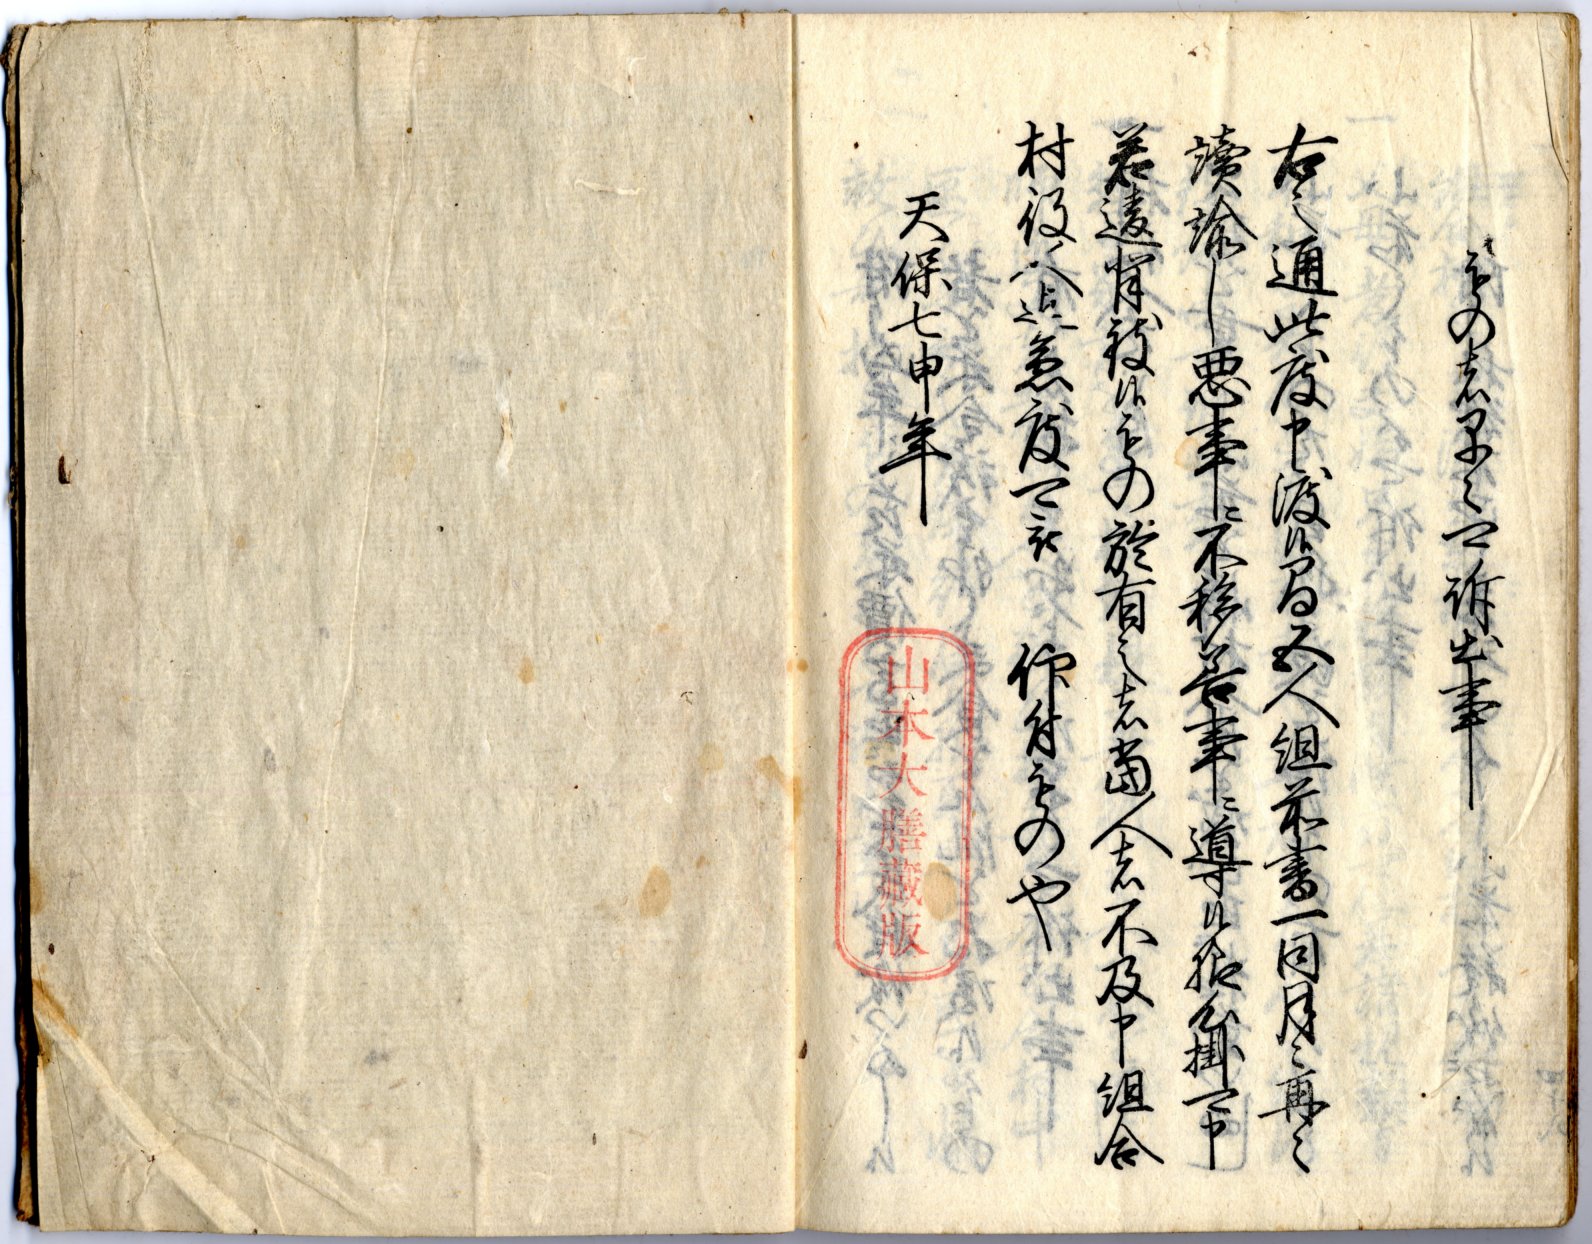 もの者早々可訴出事
右之通此度申渡候間五人組前書一同月々再々
讀諭し悪事ニ不移善事ニ導候様心掛可申
若違背致候もの於有之者當人者不及申組合
村役人迄急度可被 仰付もの也
天保七申年
山本大膳藏版